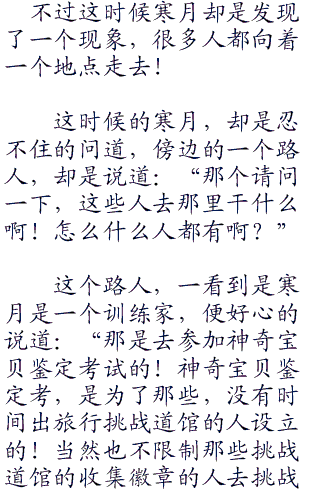 不过这时候寒月却是发现
了一个现象，很多人都向着
一个地点走去！
这时候的寒月，却是忍
不住的问道，傍边的一个路
人，却是说道：“那个请问
一下，这些人去那里干什么
啊！怎么什么人都有啊？”
这个路人，一看到是寒
月是一个训练家，便好心的
说道：“那是去参加神奇宝
贝鉴定考试的！神奇宝贝鉴
定考，是为了那些，没有时
间出旅行挑战道馆的人设立
的！当然也不限制那些挑战
道馆的收集徽章的人去挑战